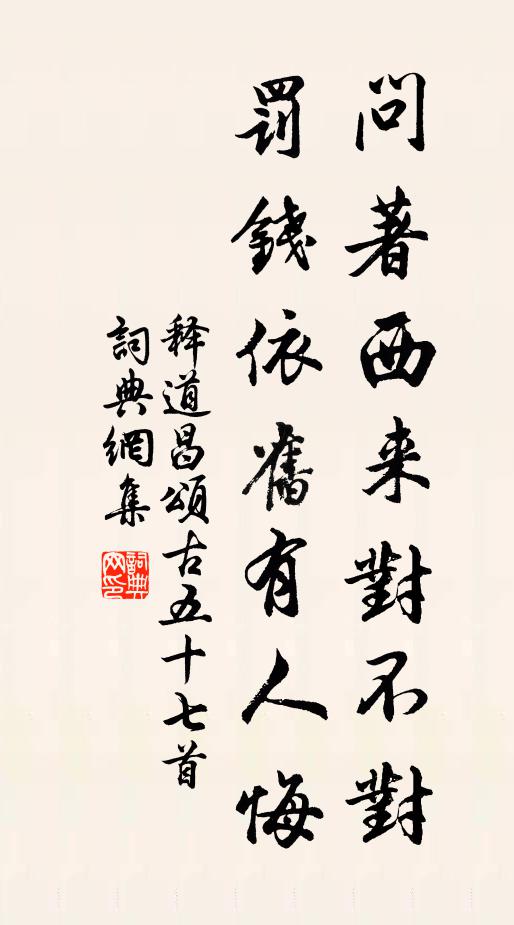 問著西来對不對
罰錢依舊有人悔
释道昌頌古五十七首
詞典網集
詞典網印